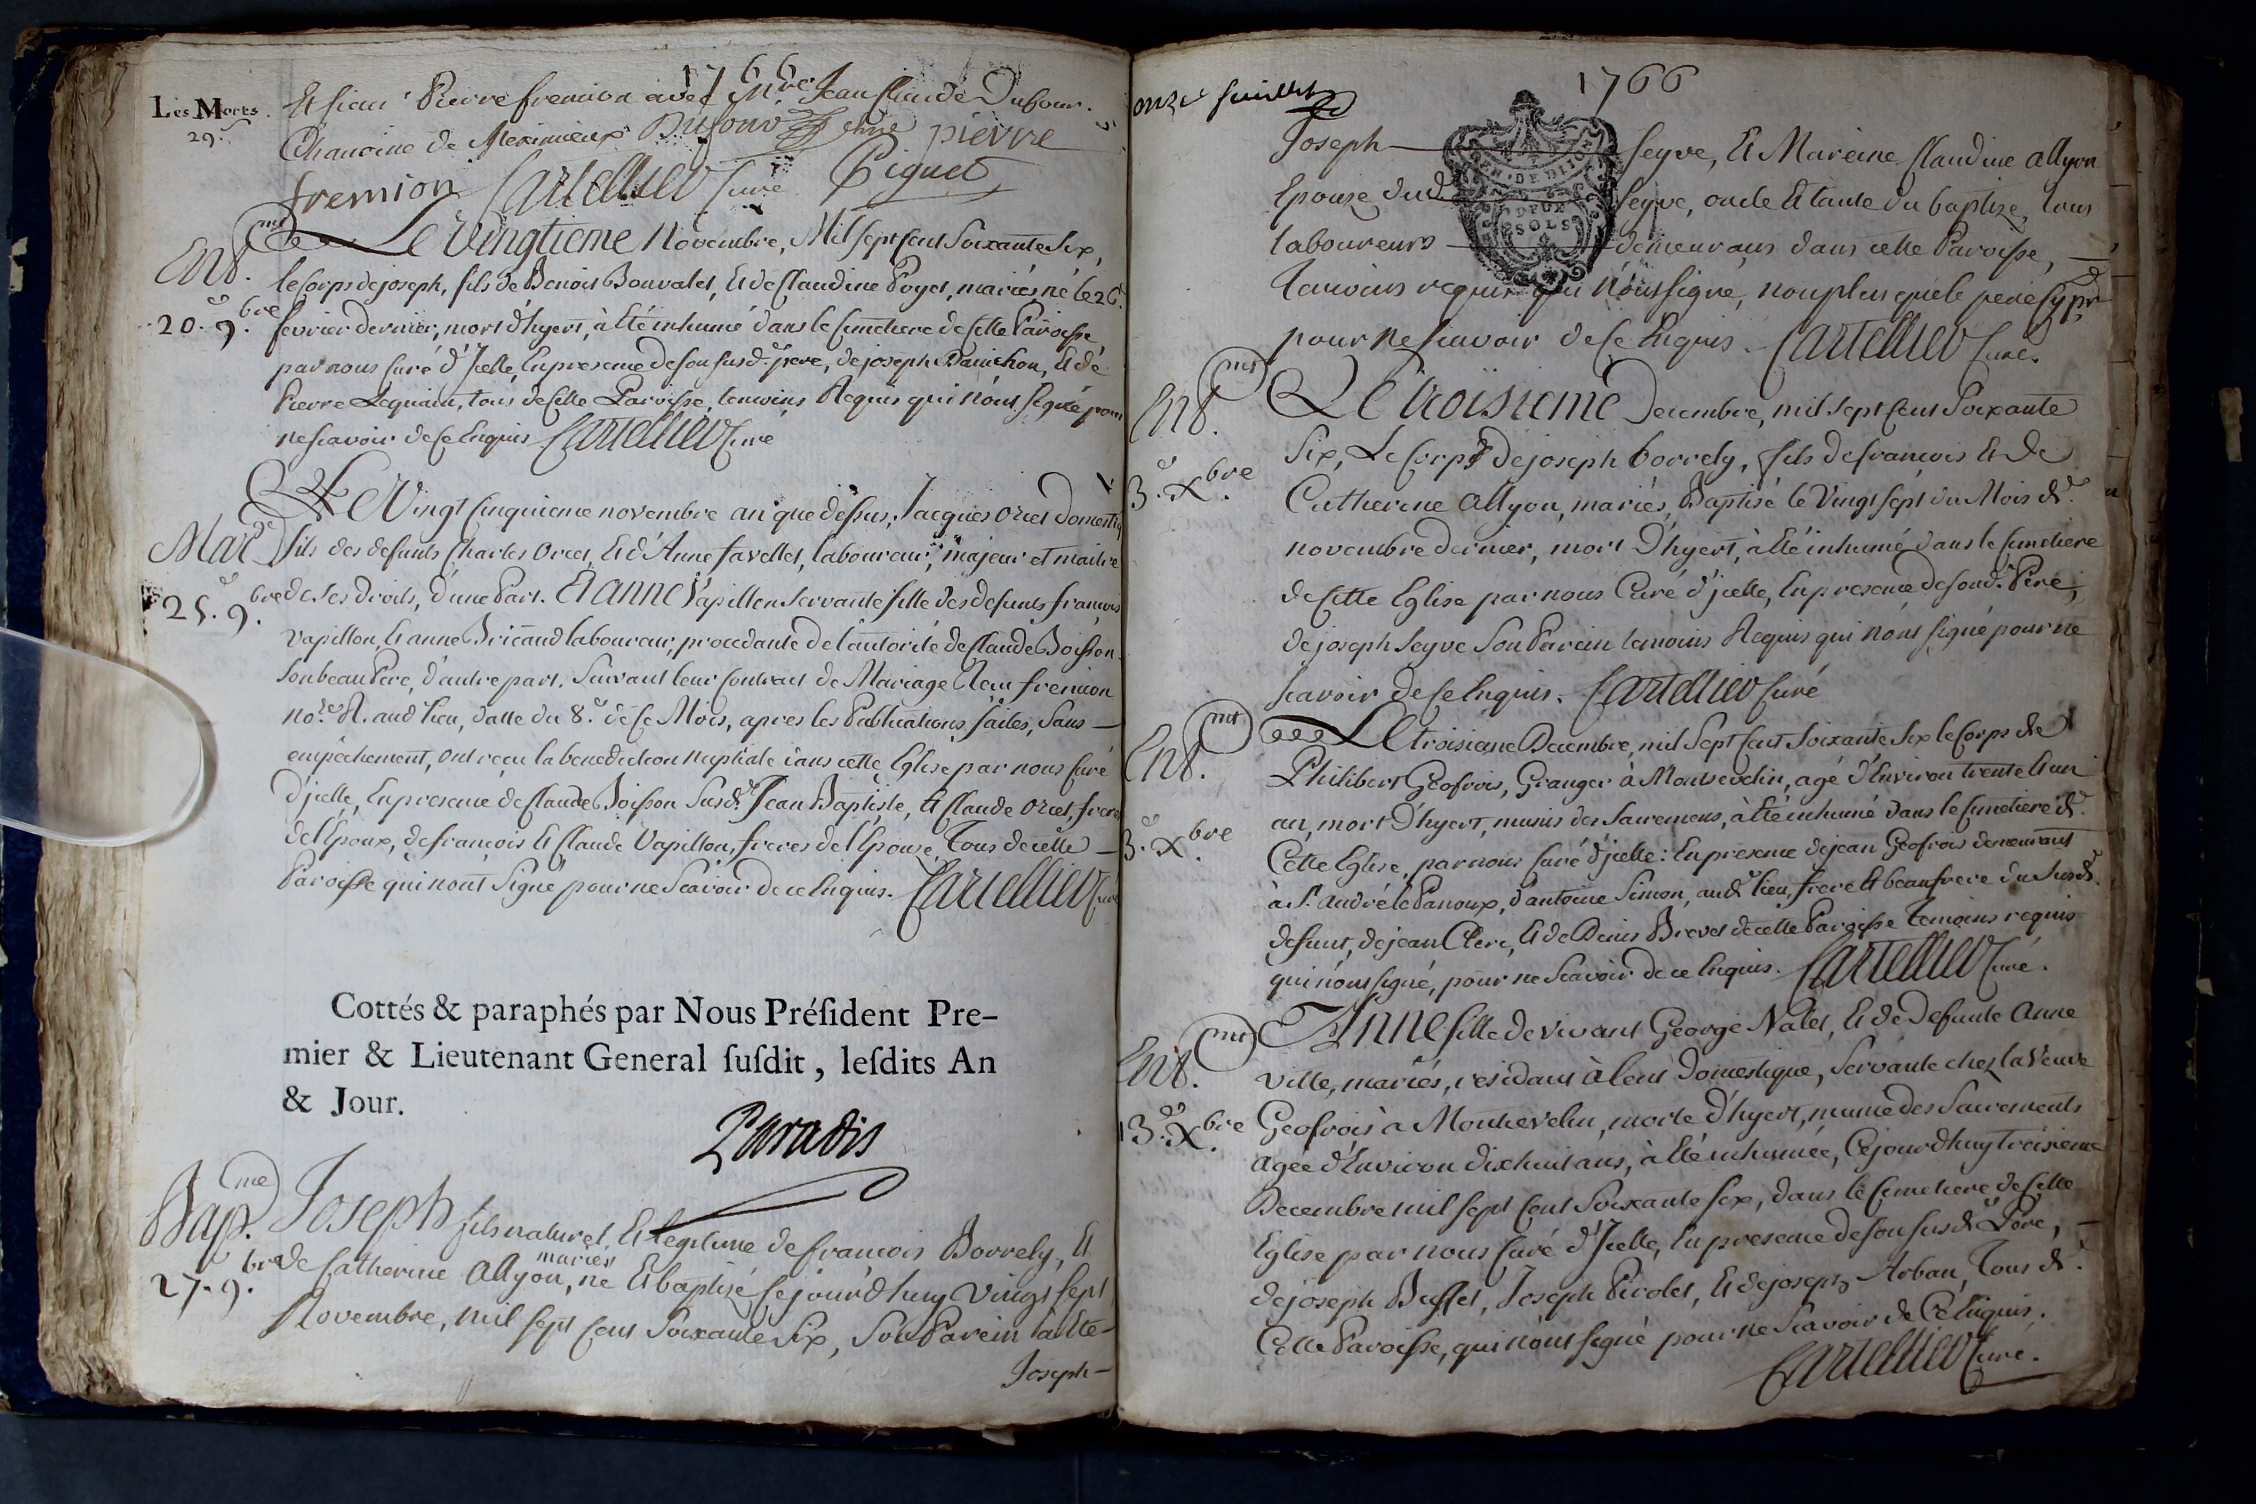 1766
Les Morts.
29.e
Et sieur Pierre fremion avec Mre Jean Claude Dufour.
Chanoine de Meximieux Dufour chne pierre
fremion Cartellier Curé Piquet
Entmt.
20.e 9.bre
Le Vingtieme Novembre, Mil sept cent Soixante Six,
le Corps de joseph, fils de Benoit Bonvalet, Et de Claudine Poyet, mariés né le 26.e
fevrier dernier, mort d'hyert, à Eté inhumé dans le Cimetiere de Cette Paroisse
par nous Curé d'Jcelle, En presence de son susd. pere, de joseph Banichon, Et de
Pierre Lequain, tous de Cette Paroisse, temoins Requis qui n'ont signé pour
ne scavoir de Ce Enquis Cartellier Curé
Mar.ge
25.e 9.bre
Le Vingt Cinquieme novembre an que dessus; Jacques Orcet Domestiq
fils des defunts Charles Orcet, Et d'Anne favellet, laboureur, majeur et maitre
de ses droits, d'une Part. Et anne Vapillon servante fille des defunts françois
Vapillon, Et anne Bricaud laboureur, procedante de l'autorité de Claude Boisson
son beau Pere, d'autre part. Suivant leur Contract de Mariage Recu fremion
no.re R. aud. lieu, datte du 8.e de Ce Mois, apres les Publications faites, sans
empechement, ont reçu la benediction nuptiale dans cette Eglise par nous Curé
d'jcelle, En presence de Claude Boisson Susd. Jean Baptiste, Et Claude Orcet, freres
de l'Epoux, de françois Et Claude Vapillon, freres de l'Epouse, Tous de cette
Paroisse qui n'ont signé pour ne Scavoir de ce Enquis. Cartellier Curé
Cottés & paraphés par Nous Préſident Pre-
mier & Lieutenant General ſuſdit, leſdits An
& Jour.
Paradis
Bap.me
27.e 9.bre
Joseph fils naturel Et legitime de francois Borrely, Et
mariés
de Catherine Allyon, né Et baptisé Cejourd'huy Vingt sept
Novembre, mil sept cent Soixante Six, Son Parein à Eté
Joseph
onze feuillet
1766
Joseph Seyve, Et Mareine Claudine Allyon
GEN. DE DIJON
Epouse dud. Seyve, oncle Et tante du baptisé, tous
DEUX SOLS
laboureurs demeurans dans cette Paroisse,
temoins requis qui n'ont signé, nonplus que le pere Cy pnt
pour ne scavoir de Ce Enquis Cartellier Curé.
Entmt.
3.e Xbre
Le troisieme Decembre, mil sept cent Soixante
Six, Le Corps de joseph borrely, fils de francois Et de
Catherine Allyon, mariés, Baptisé le Vingt sept du Mois de
novembre dernier, mort D'hyert, à Eté inhumé dans le Cimetiere
de Cette Eglise par nous Curé d'jcelle, En presence de sond. Pere,
de joseph Seyve Son Parein temoins Requis qui n'ont signé pour ne
scavoir de Ce Enquis. Cartellier Curé
Entmt.
3.e Xbre
Le troisieme Decembre, mil Sept Cent Soixante Six le Corps de
Philibert Geofrois, Granger à Montrevelin, agé d'Environ trente Et un
an, mort D'hyert, munis des Sacremens, à Eté inhumé dans le Cimetiere de
Cette Eglise, par nous Curé d'jcelle: En presence de jean Geofrois demeurant
à St. andré le Panoux, d'antoine Simon, aud. lieu, frere Et beaufrere du Susd.
defunt, de jean Clerc, Et de Denis Brevet de cette Paroisse Temoins requis
qui n'ont signé, pour ne Scavoir de ce Enquis. Cartellier Curé.
Entmt.
13.e Xbre
Anne fille de vivant George Nalet, Et de Defunte Anne
Ville, mariés, residant à Lent Domestique, Servante chez la Veuve
Geofrois à Montrevelin, morte d'hyert, munie des Sacrements
agée d'Environ dixhuit ans, à Eté inhumée, Cejourdhuy Treisieme
Decembre mil sept Cent Soixante Six, dans le Cimetiere de Cette
Eglise par nous Curé d'Jcelle, En presence de son susd. Pere,
de joseph Buffet, Joseph Picolet, Et de joseph Arban, Tous de
Cette Paroisse, qui n'ont signé pour ne Scavoir de Ce Enquis.
Cartellier Curé.